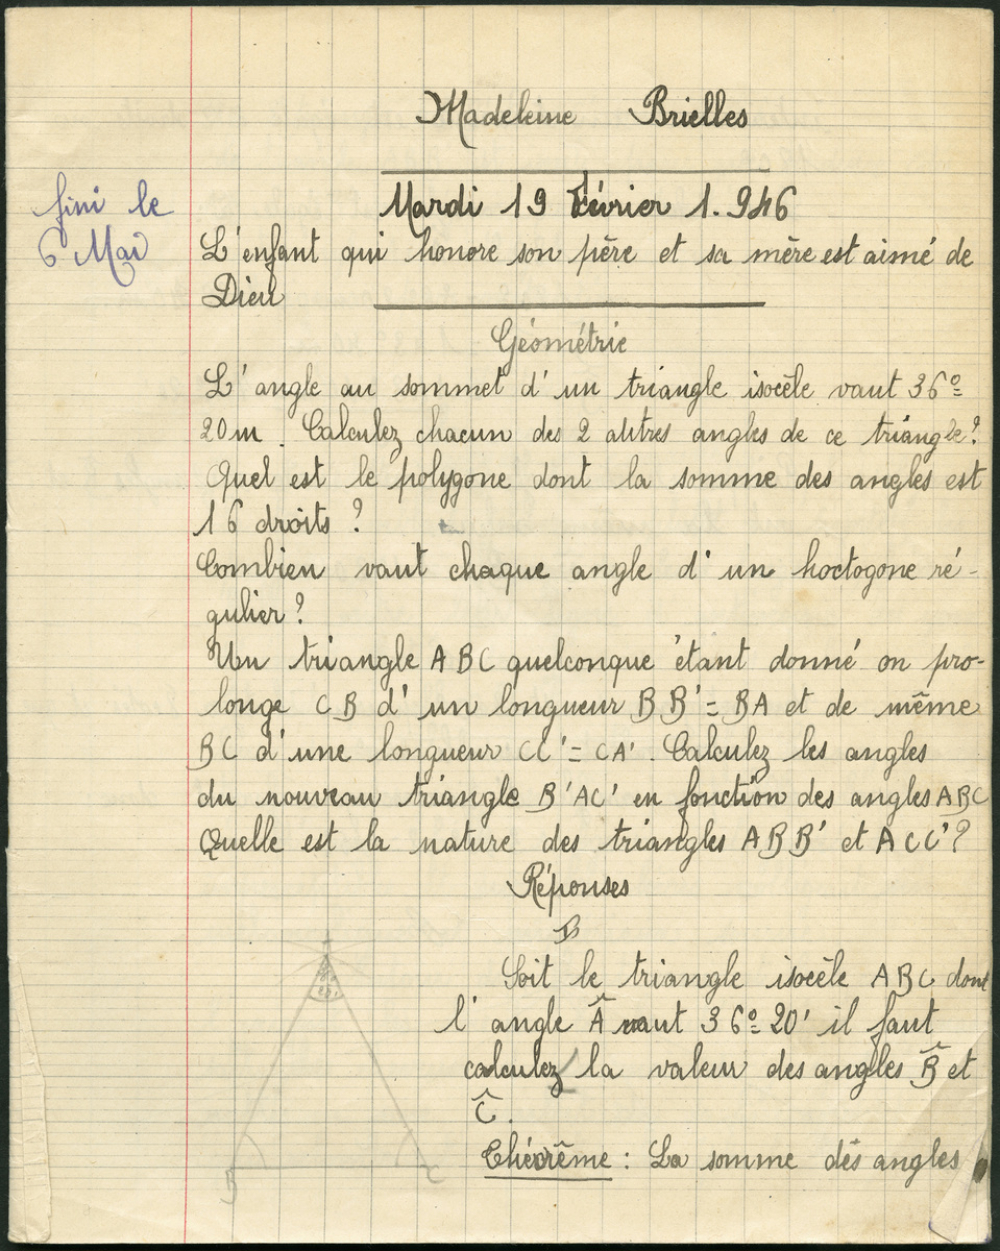 Madeleine Brielles
fini le
6 Mai
Mardi 19 Février 1.946
L'enfant qui honore son père et sa mère est aimé de
Dieu
Géométrie
L'angle au sommet d'un triangle isocèle vaut 36º
20m. Calculez chacun des 2 autres angles de ce triangle?
Quel est le polygone dont la somme des angles est
16 droits ?
Combien vaut chaque angle d'un hoctogone ré-
gulier ?
Un triangle ABC quelconque étant donné on pro-
longe CB d'un longueur BB' = BA et de même
BC d'une longueur CC' = CA'. Calculez les angles
du nouveau triangle B'AC' en fonction des angles ABC
Quelle est la nature des triangles ABB' et ACC'?
Réponses
Soit le triangle isocèle ABC dont
l'angle Â vaut 36º 20' il faut
calculez la valeur des angles B̂ et
Ĉ.
Théorême : La somme dés angles
B C